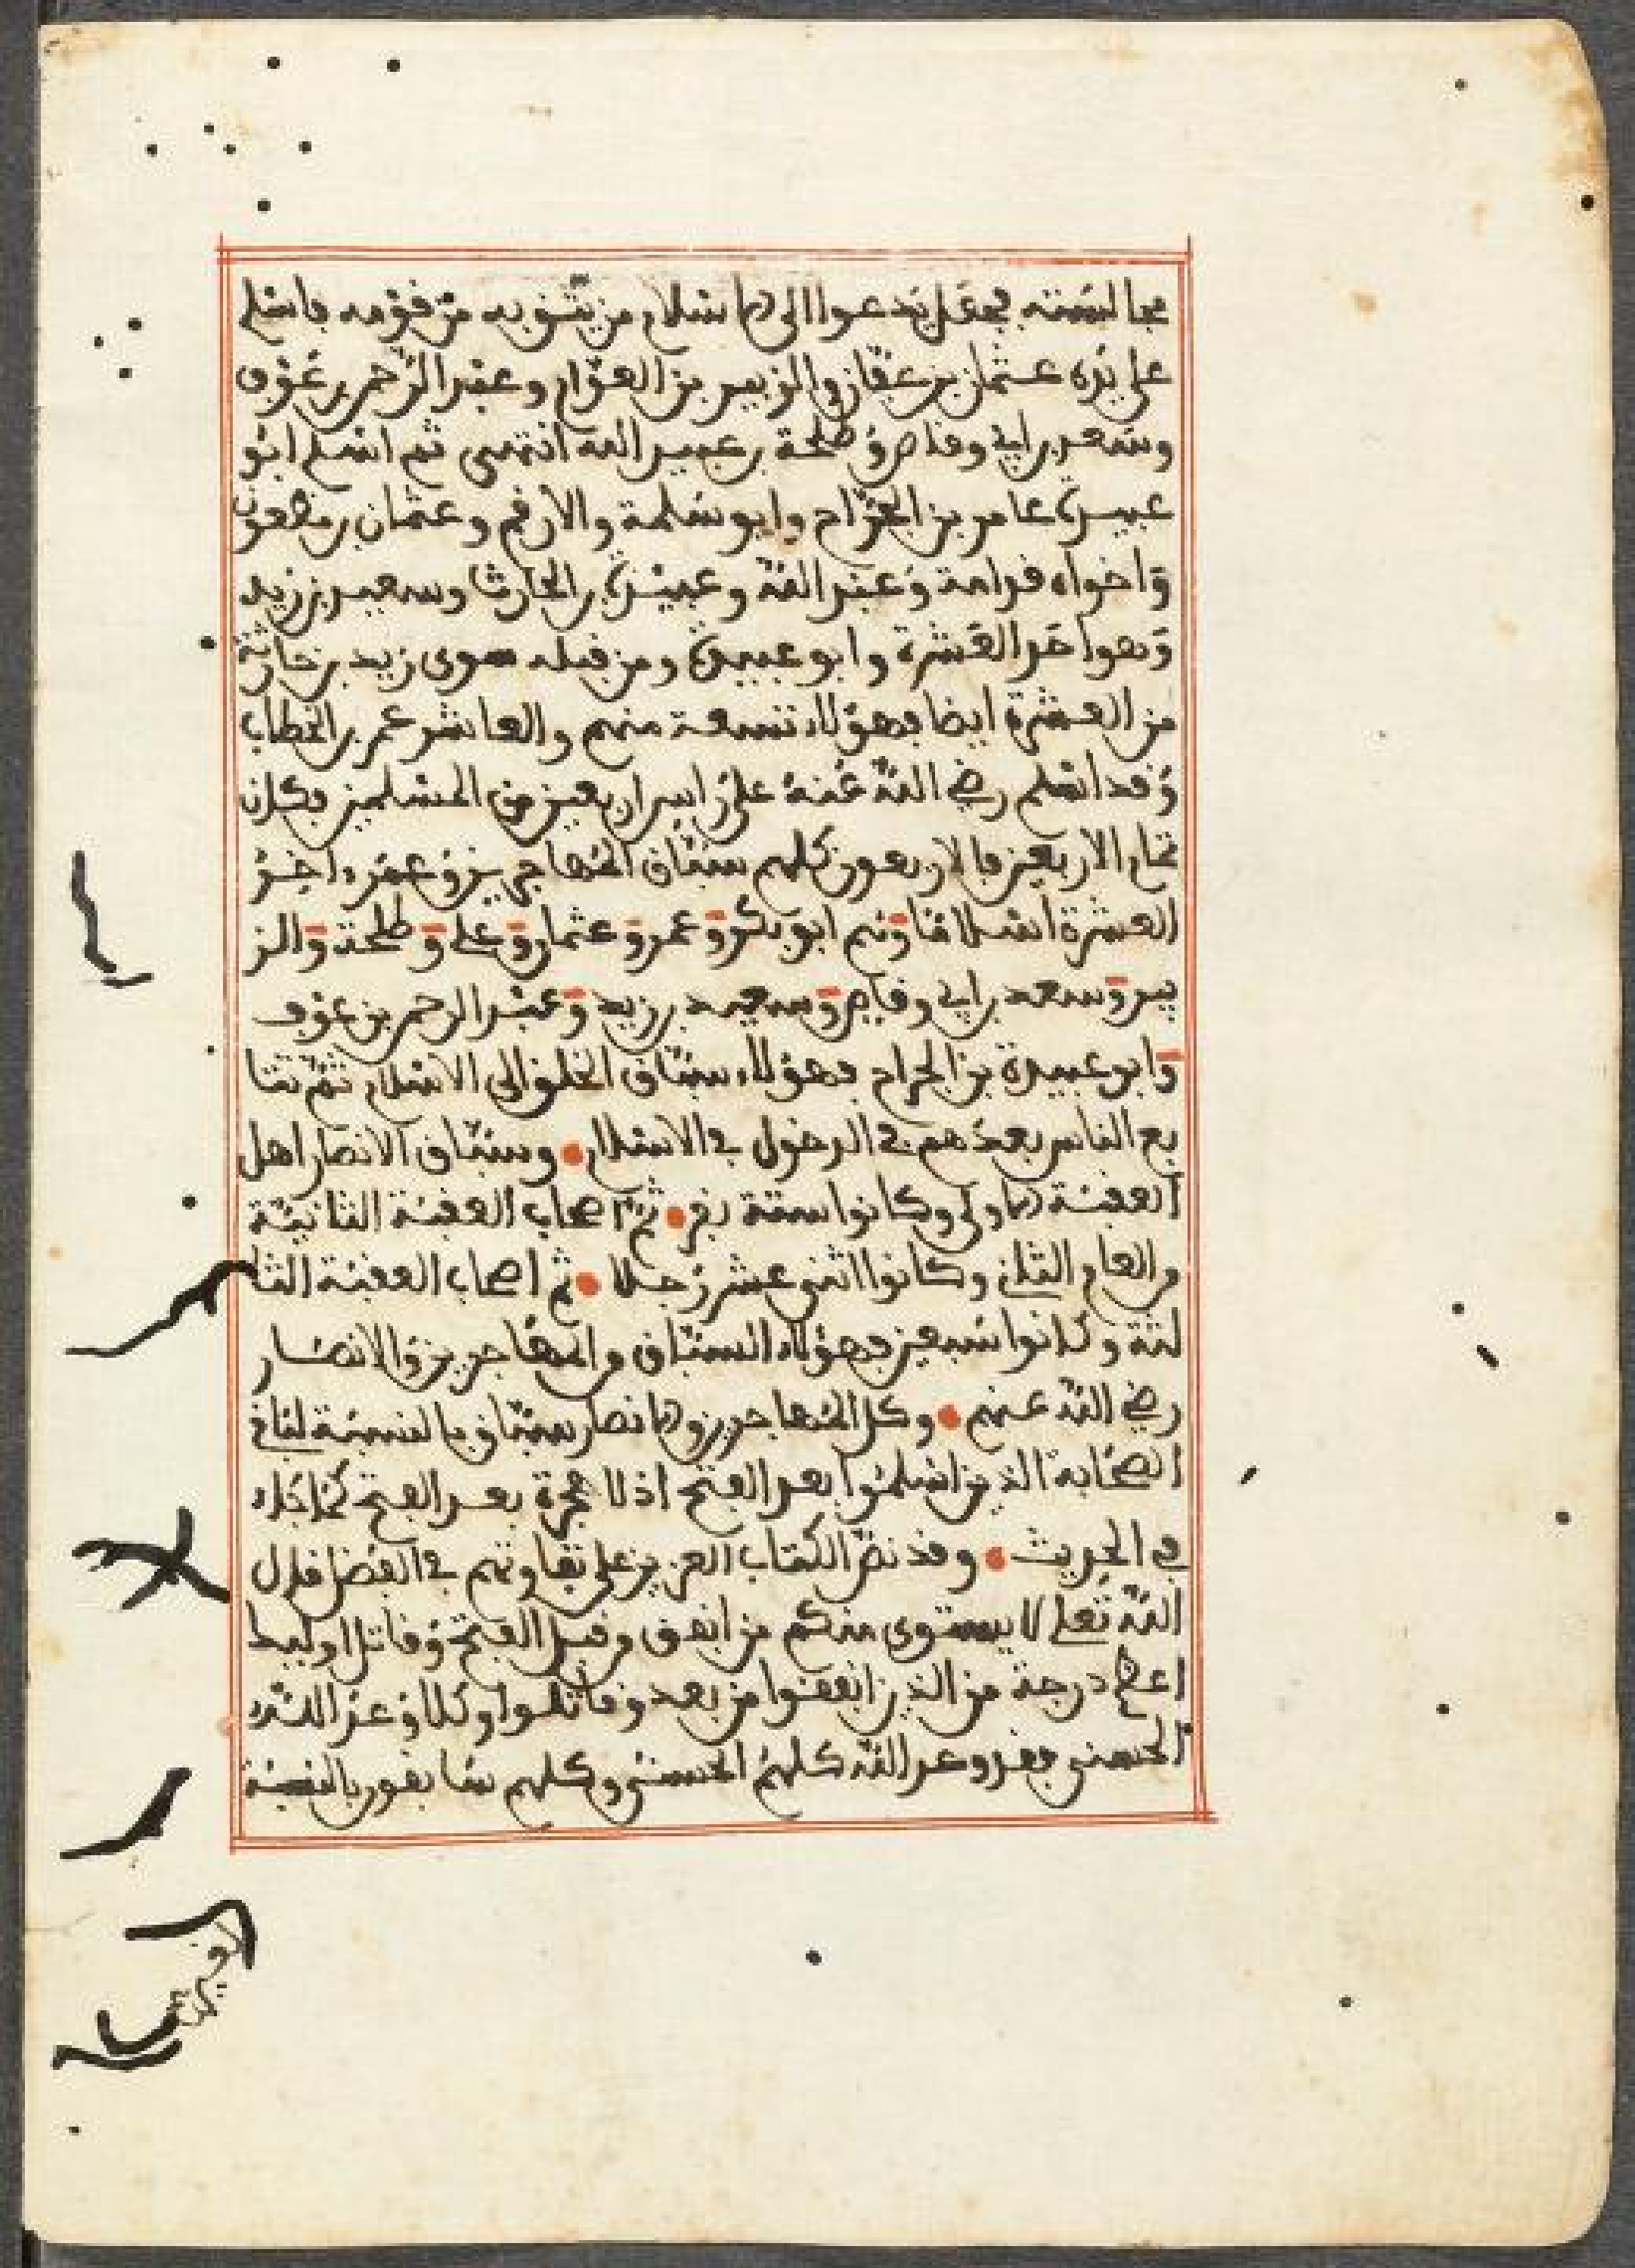 مجالسته فجعل يدعوا الى الاسلام من يثق به من قومه فاسلم
على يده عثمان بن عفان والزبير بن العوام وعبد الرحمن بن عوف
وسعد بن ابي وقاص وطلحة بن عبيد الله انتهى ثم اسلم ابو
عبيدة عامر بن الجراح وابو سلمة والارقم وعثمان بن مظعون
واخواه قدامة وعبد الله وعبيدة بن الحارث وسعيد بن زيد
وهو احد العشرة وابو عبيدة ومن قبله سوى زيد بن حارثة
من العشرة ايضا فهؤلاء تسعة منهم والعاشر عمر بن الخطاب
وقد اسلم رضي الله عنه على راس اربعين من المسلمين فكان
تمام الاربعين فالاربعون كلهم سباق المهاجرين وعمر ءاخر
العشرة اسلاما وهم ابو بكر وعمر وعثمان وعلي وطلحة والز
بير وسعد بن ابي وقاص وسعيد بن زيد وعبد الرحمن بن عوف
وابو عبيدة بن الجراح فهؤلاء سباق الخلق الى الاسلام ثم تتا
بع الناس بعدهم في الدخول في الاسلام • وسباق الانصار اهل
العقبة الاولى وكانوا ستة نفر • ثم اصحاب العقبة الثانية
من العام الثاني وكانوا اثنى عشر رجلا • ثم اصحاب العقبة الثا
لثة وكانوا سبعين فهؤلاء السباق من المهاجرين والانصار
رضي الله عنهم • وكل المهاجرين والانصار سباق بالنسبة لباقي
الصحابة الذين اسلموا بعد الفتح اذ لا هجرة بعد الفتح كما جاء
في الحديث • وقد نص الكتاب العزيز على تفاوتهم في الفضل قال
الله تعلى لا يستوى منكم من انفق من قبل الفتح وقاتل اوليك
اعظم درجة من الذين انفقوا من بعد وقاتلوا وكلا وعد الله
الحسنى فقد وعد الله كلهم الحسنى وكلهم سابقون بالنسبة